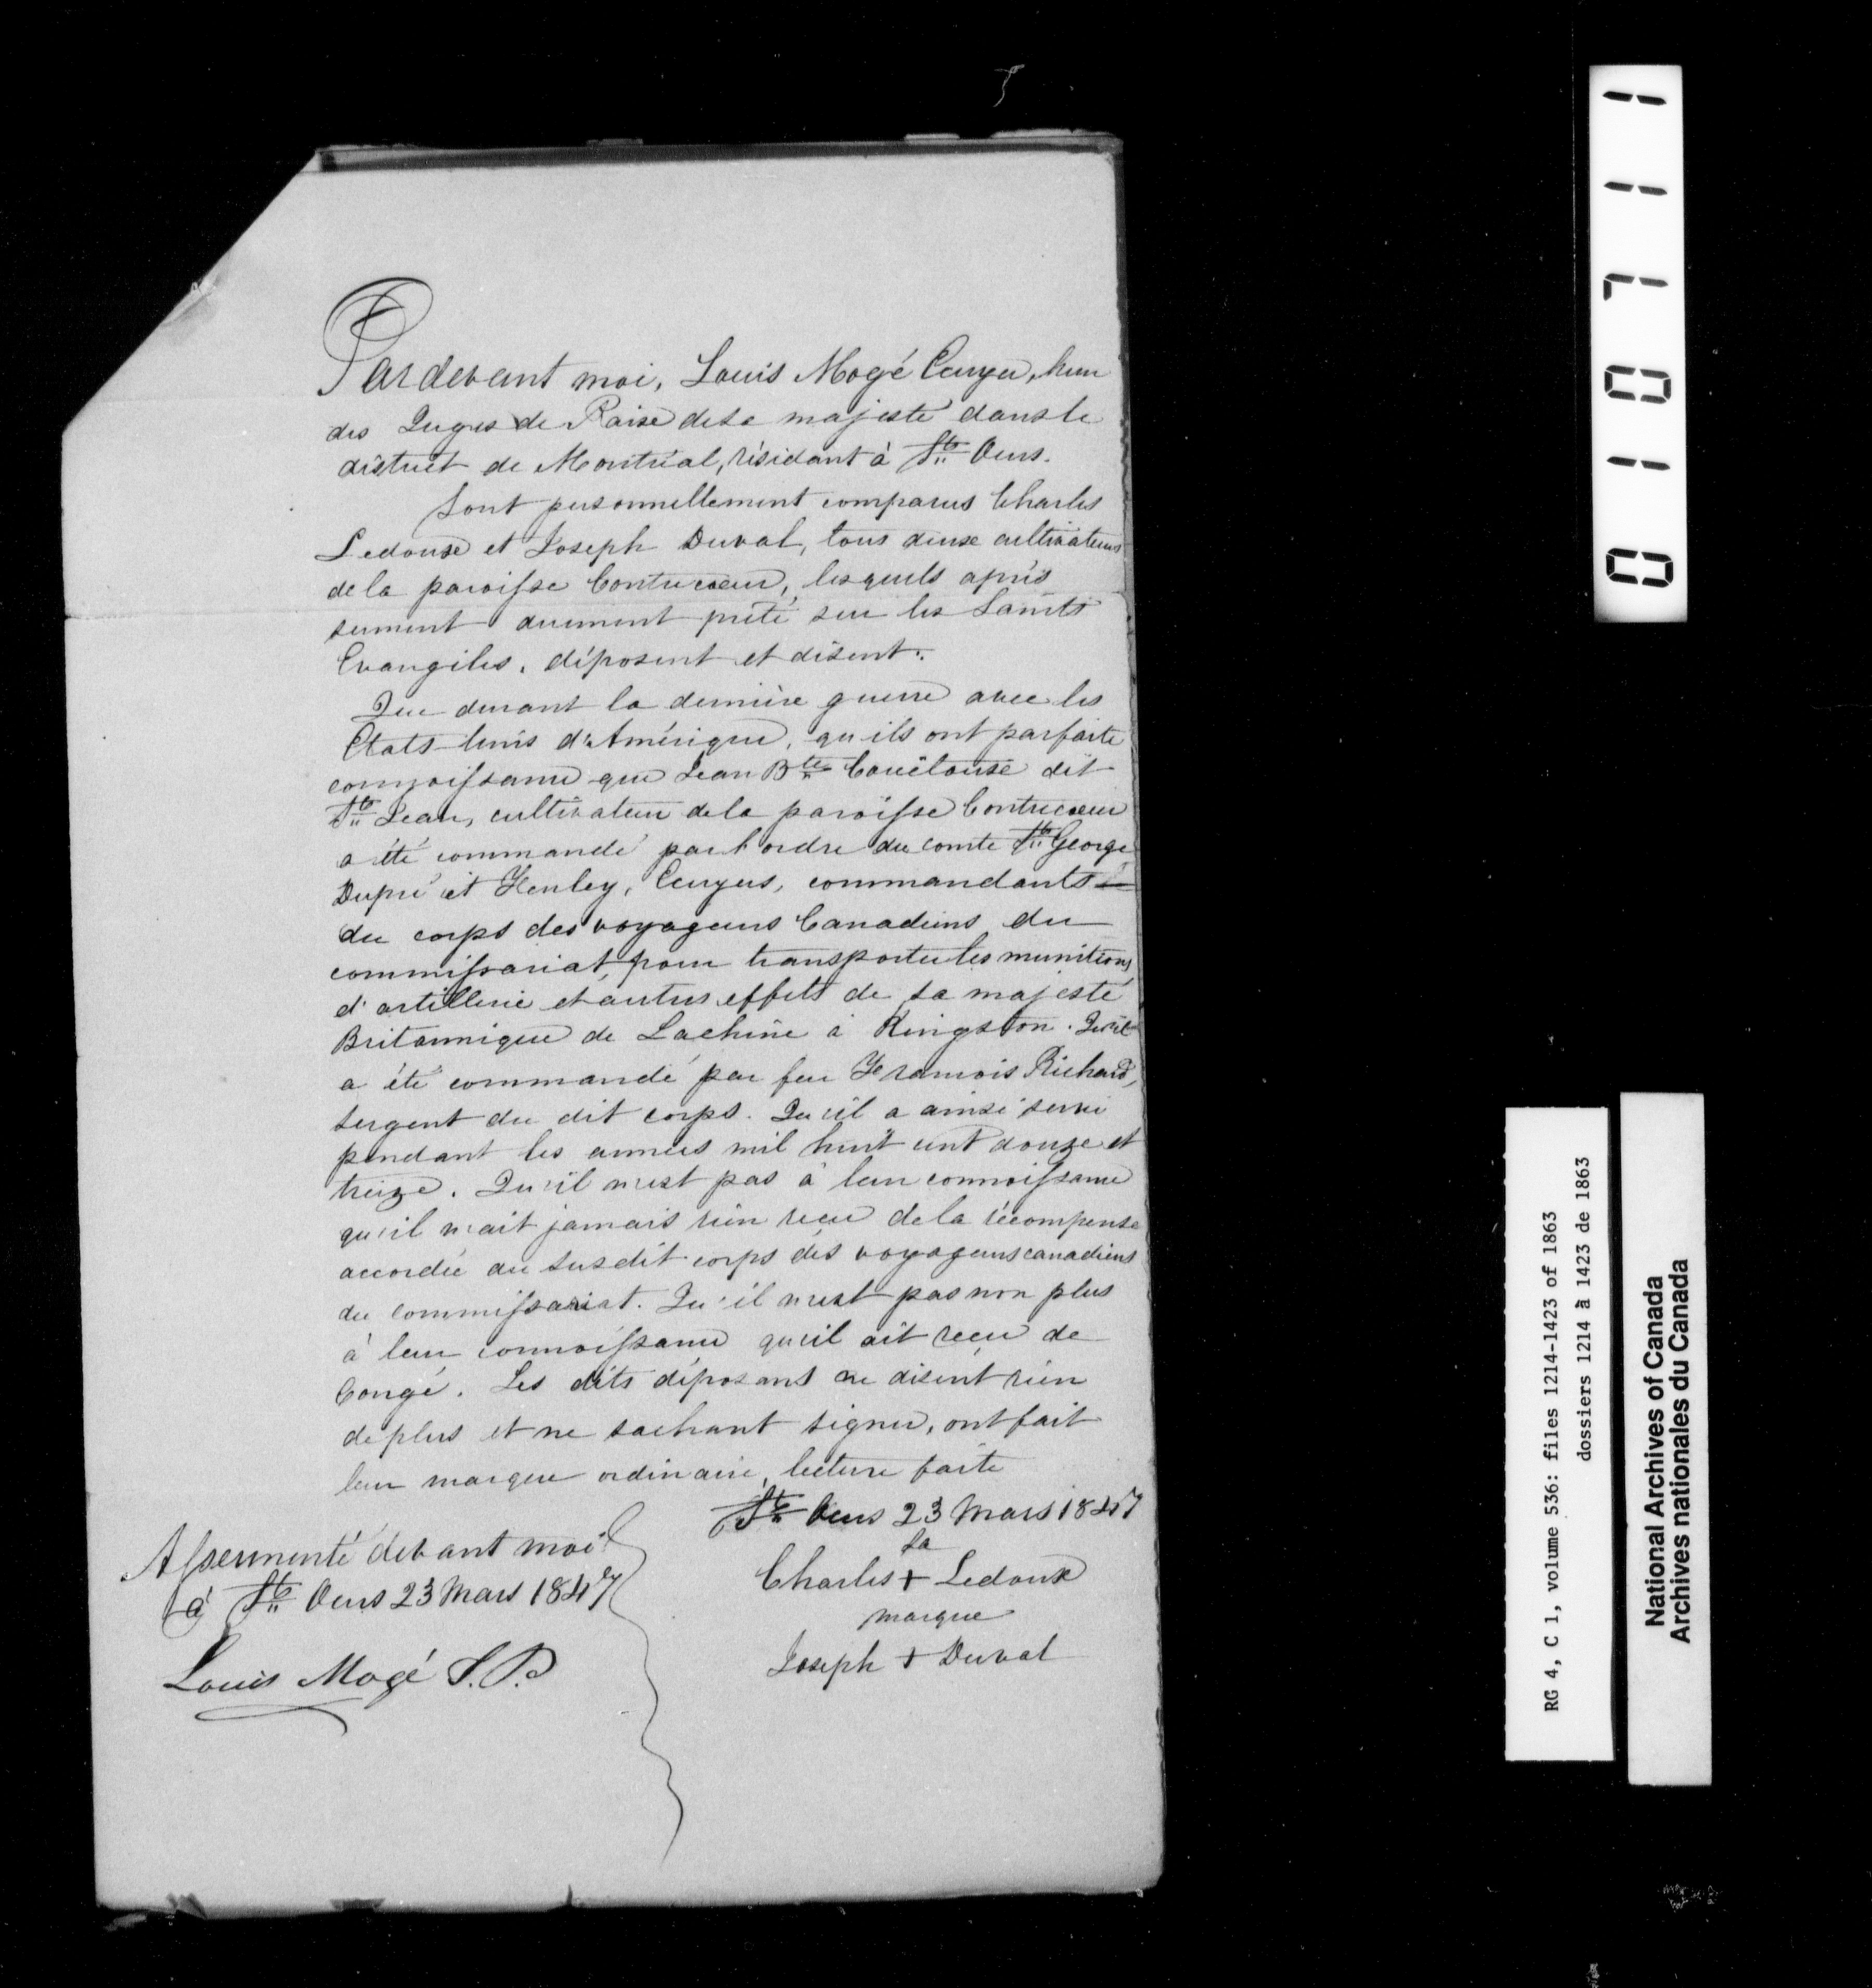 Pardevant moi, Louis Mogé Ecuyer, l'un
des Juges de Paix de sa majesté dans le
district de Montréal, résidant à St Ours.
Sont personnellement comparus Charles
Ledoux et Joseph Duval, tous deux cultivateurs
de la paroisse Contrecoeur, lesquels après
serment duement prêté sur les Saints
Evangiles, déposent et disent:
Que durant la dernière guerre avec les
Etats-Unis d'Amérique, qu'ils ont parfaite
connoissance que Jean Bte dit
St Jean, cultivateur de la paroisse Contrecoeur
a été commandé par l'ordre du comte St George
Dupré et Henley, Ecuyers, commandants
du corps des voyageurs Canadiens du
commissariat, pour transporter les munitions
d'artillerie et autres effets de sa majesté
Britannique de Lachine à Kingston. Qu'il
a été commandé par feu François Richard,
sergent du dit corps. Qu'il a ainsi servi
pendant les années mil huit cent douze et
treize. Qu'il n'est pas à leur connoissance
qu'il n'ait jamais rien recu de la récompense
accordée au susdit corps des voyageurs canadiens
du commissariat. Qu'il n'est pas non plus
à leur connoissance qu'il ait recu de
Congé. Les dits déposant ne disent rien
de plus et ne sachant signer, ont fait
leur marque ordinaire, lecture faite
St Ours 23 Mars 1847
Assermenté devant moi
à St Ours 23 Mars 1847
Louis Mogé J.P.
sa
Charles + Ledoux
marque
Joseph + Duval
0 1 0 7 1 1
RG 4, C 1, volume 536: files 1214-1423 of 1863
dossiers 1214 à 1423 de 1863
National Archives of Canada
Archives nationales du Canada